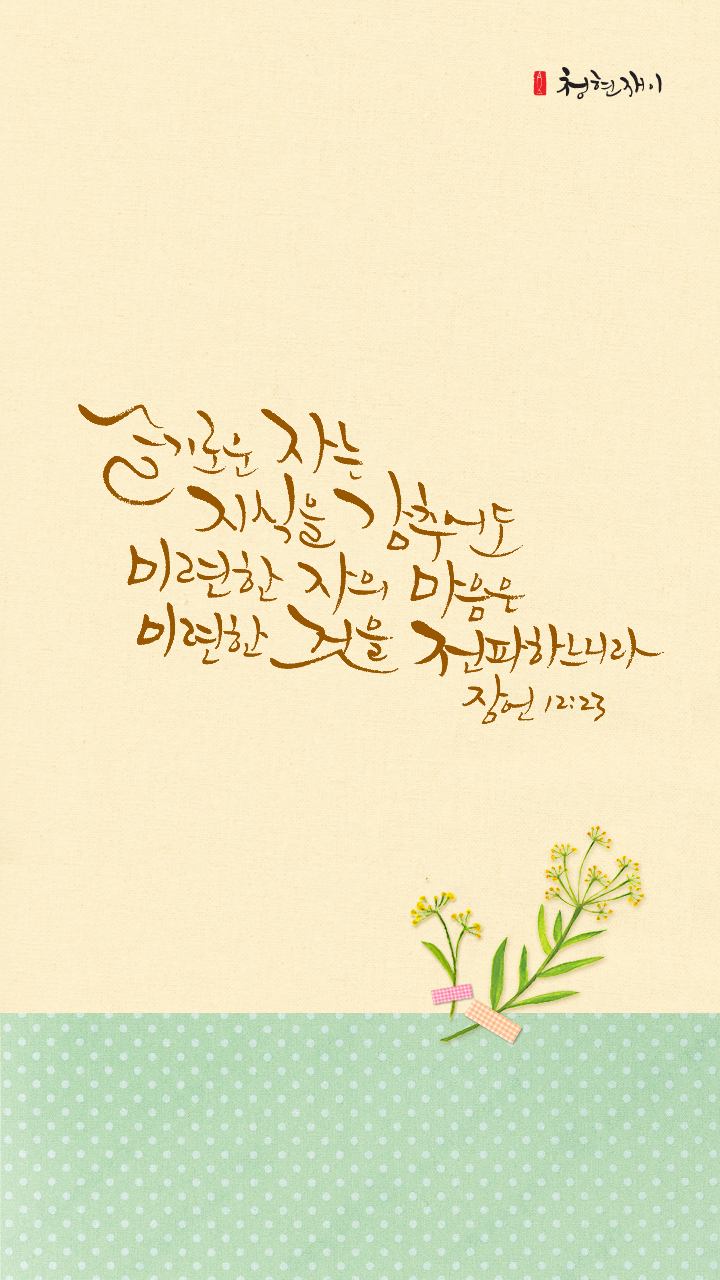 청현재이
슬기로운 자는
지식을 감추어도
미련한 자의 마음은
미련한 것을 전파하느니라
잠언 12:23